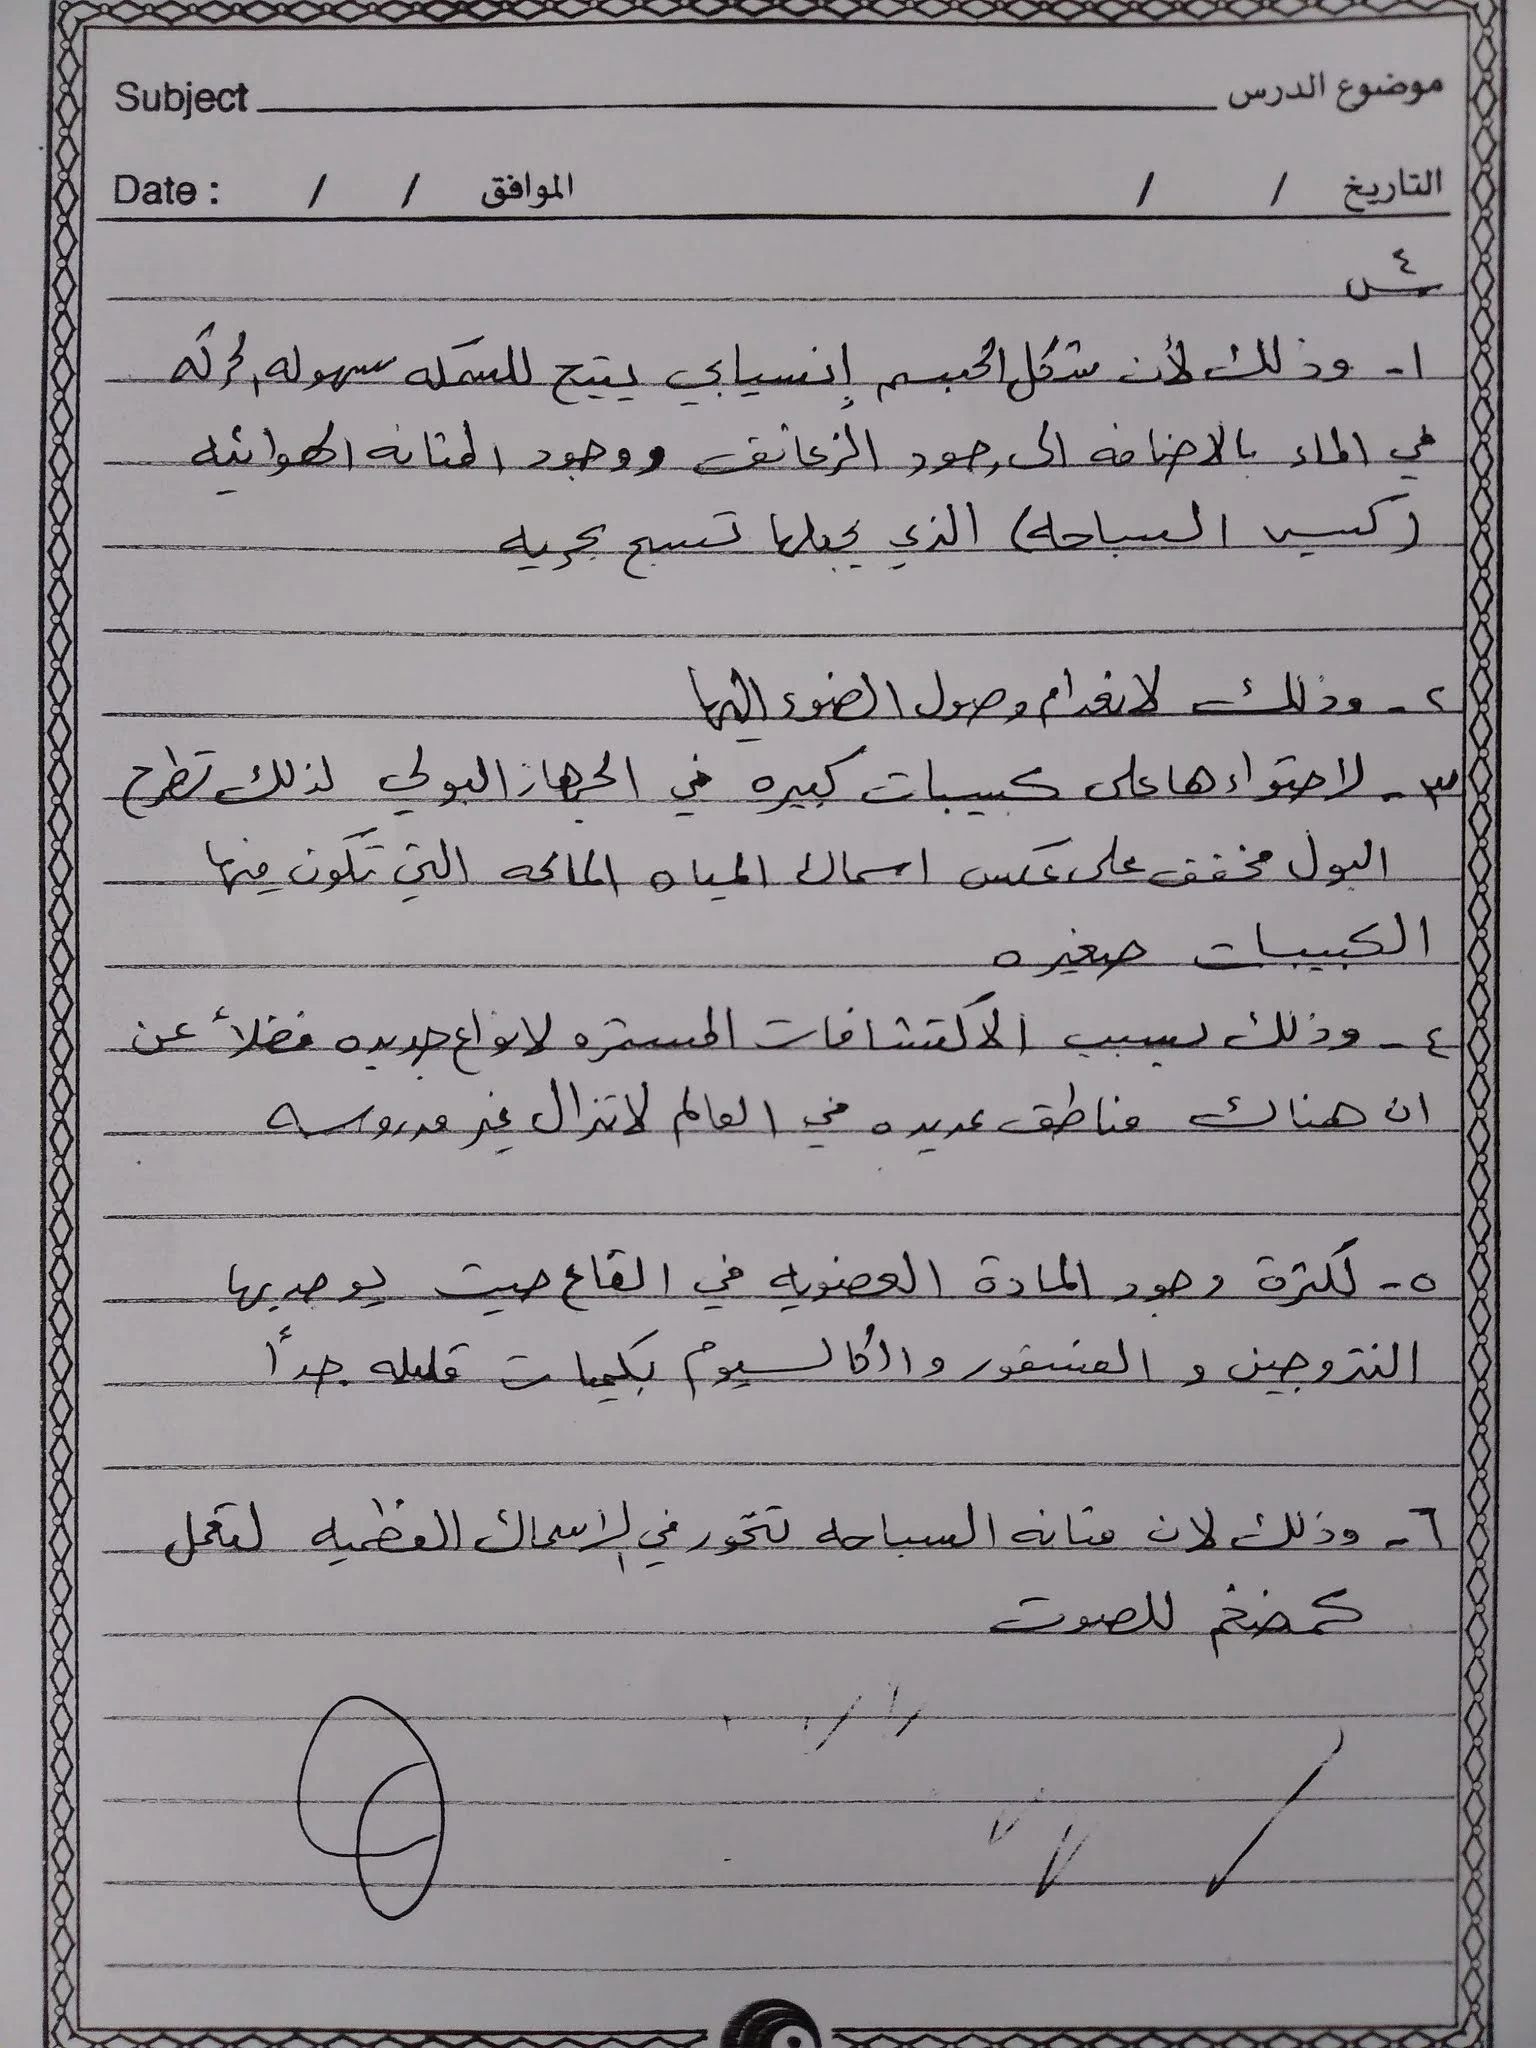 Subject موضوع الدرس
Date : / / الموافق / / التاريخ
س٤
١- وذلك لأن شكل الجسم إنسيابي يتيح للسمكه سهوله الحركه
في الماء بالاضافه الى وجود الزعانف ووجود المثانه الهوائيه
(كيس السباحه) الذي يجعلها تسبح بحريه
٢- وذلك لانعدام وصول الضوء اليها
٣- لاحتواءها على كبيبات كبيره في الجهاز البولي لذلك تطرح
البول مخفف على عكس اسماك المياه المالحه التي تكون فيها
الكبيبات صغيره
٤- وذلك بسبب الاكتشافات المستمره لانواع جديده فضلاً عن
ان هناك مناطق عديده في العالم لاتزال غير مدروسه
٥- لكثرة وجود المادة العضويه في القاع حيث يوجد بها
النتروجين و الفسفور والكالسيوم بكميات قليله جداً
٦- وذلك لان مثانه السباحه تتحور في الاسماك العظميه لتعمل
كمضخم للصوت